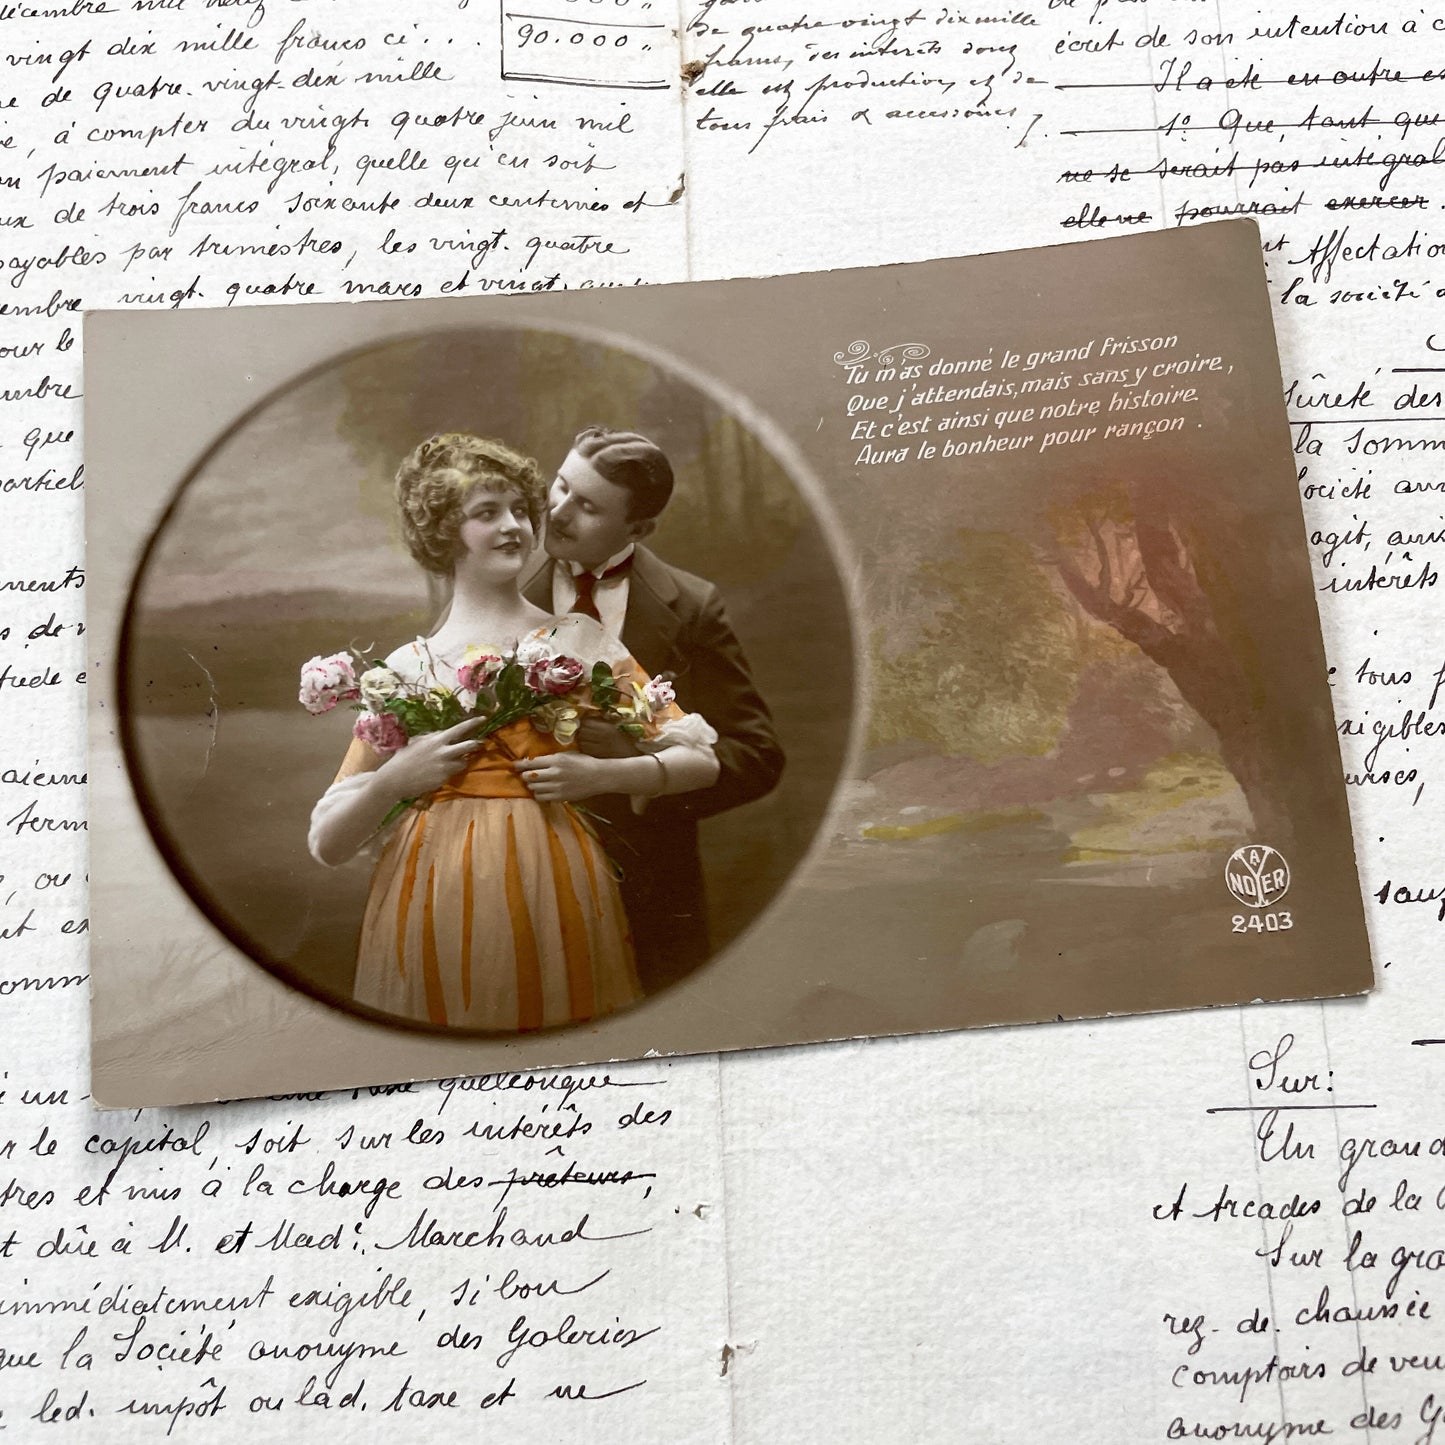 vingt dix mille francs ci . . .
90.000 „
de quatre-vingt-dix mille
, à compter du vingt quatre juin mil
paiement intégral, quelle qu'en soit
de trois francs soixante deux centimes et
payables par trimestres, les vingt-quatre
vingt-quatre mars et vingt-
de quatre vingt dix mille
francs, des intérêts dont
elle est productive, et de
tous frais & accessoires
écrit de son intention à c
Il a été en outre
1º Que, tant que
ne se serait pas intégral
elle ne pourrait exercer.
Affectation
la société
Sûreté des
la somm
Société an
agit,
intérêts
tous f
exigibles
Tu m'as donné le grand frisson
Que j'attendais, mais sans y croire,
Et c'est ainsi que notre histoire
Aura le bonheur pour rançon.
A NOYER
2403
our le
mbre
que
partiel
ments
s de
aieme
term
, ou
nt ex
omm
quelconque
r le capital, soit sur les intérêts des
tres et mis à la charge des prêteurs,
t dûe à M. et Made. Marchand
immédiatement exigible, si bon
que la Société anonyme des Galeries
led. impôt ou lad. taxe et ne
Sur:
Un grand
et Arcades de la
Sur la gra
rez-de-chaussée
comptoirs de ven
anonyme des G